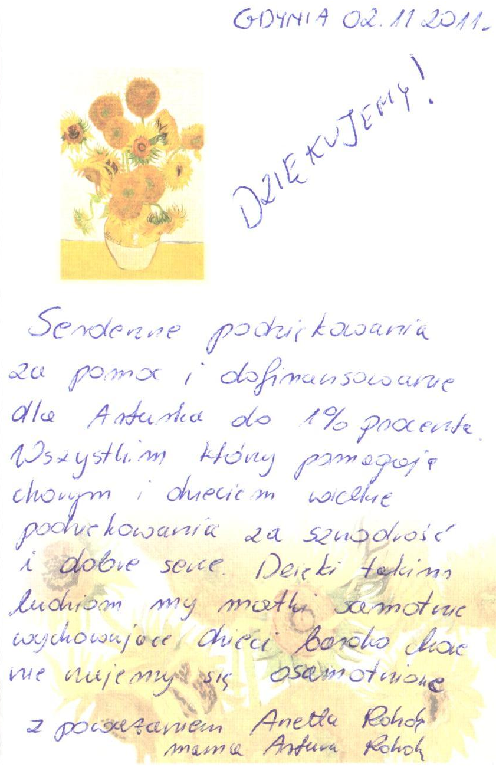 GDYNIA 02.11 2011.
DZIĘKUJEMY!
Serdeczne podziękowania
za pomoc i dofinansowanie
dla Arturka do 1% procenta.
Wszystkim którzy pomagają
chorym i dzieciem wielkie
podziekowania za szczodrość
i dobre serce. Dzięki takim
ludziom my matki samotnie
wychowujące dzieci bardzo chore
nie czujemy się osamotnione
z poważaniem Anetta
mama Artura